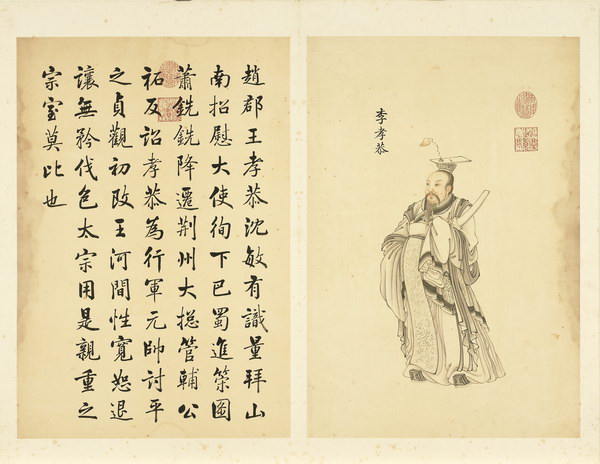 李孝恭
趙郡王孝恭沈敏有識量拜山
南招慰大使徇下巴蜀進策圖
蕭銑銑降遷荆州大捴管輔公
祏反詔孝恭為行軍元帥討平
之貞觀初改王河間性寬恕退
讓無矜伐色太宗用是親重之
宗室莫比也